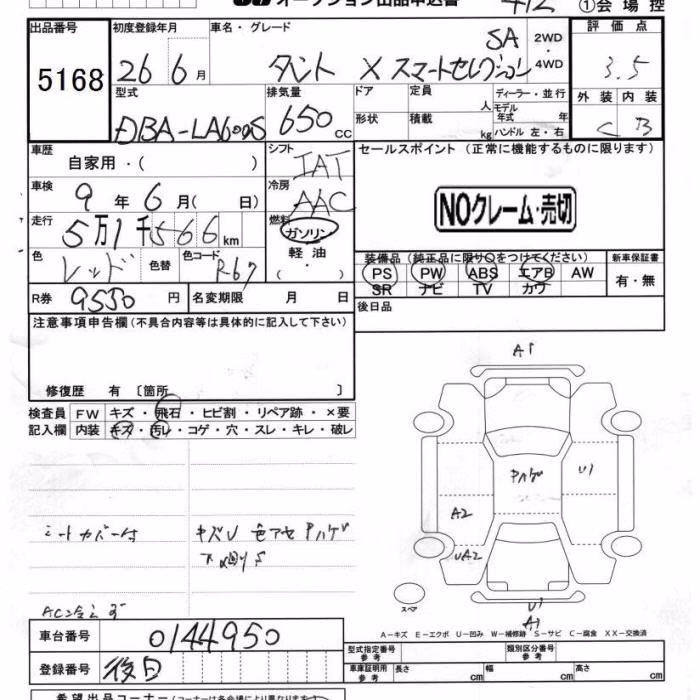 オークション出品申込書
412
①会場控
出品番号
5168
初度登録年月
26 6月
車名・グレード
タント X スマートセレクション SA
2WD・4WD
評価点
3.5
外装 内装
C B
型式
DBA-LA600S
排気量
650 CC
ドア
形状
定員 人
積載 kg
ディーラー・並行
モデル年式 年
ハンドル 左・右
車歴
自家用・( )
シフト
IAT
セールスポイント (正常に機能するものに限ります)
車検
9年 6月( 日)
冷房
AAC
NOクレーム・売切
走行
5万1千566km
燃料
ガソリン
軽油
( ・ )
色
レッド
色替
色コード
R67
装備品 (純正品に限り○をつけてください)
PS PW ABS エアB AW
SR ナビ TV カワ
新車保証書
有・無
R券
9550円
名変期限 月 日
後日品
注意事項申告欄(不具合内容等は具体的に記入して下さい)
修復歴 有 〔箇所 〕
検査員 FW キズ・飛石・ヒビ割・リペア跡・×要
記入欄 内装 キズ・汚レ・コゲ・穴・スレ・キレ・破レ
A1
Pハゲ
U1
A2
UA2
シートカバー付
キズU 色アセ Pハゲ
スペア
U1
A1
A-キズ E-エクボ U-凹み W-補修跡 S-サビ C-腐食 XX-交換済
車台番号
0144950
登録番号
後日
型式指定番号 参考
類別区分番号 参考
車庫証明用 参考
長さ cm 幅 cm 高さ cm
希望出品コーナー